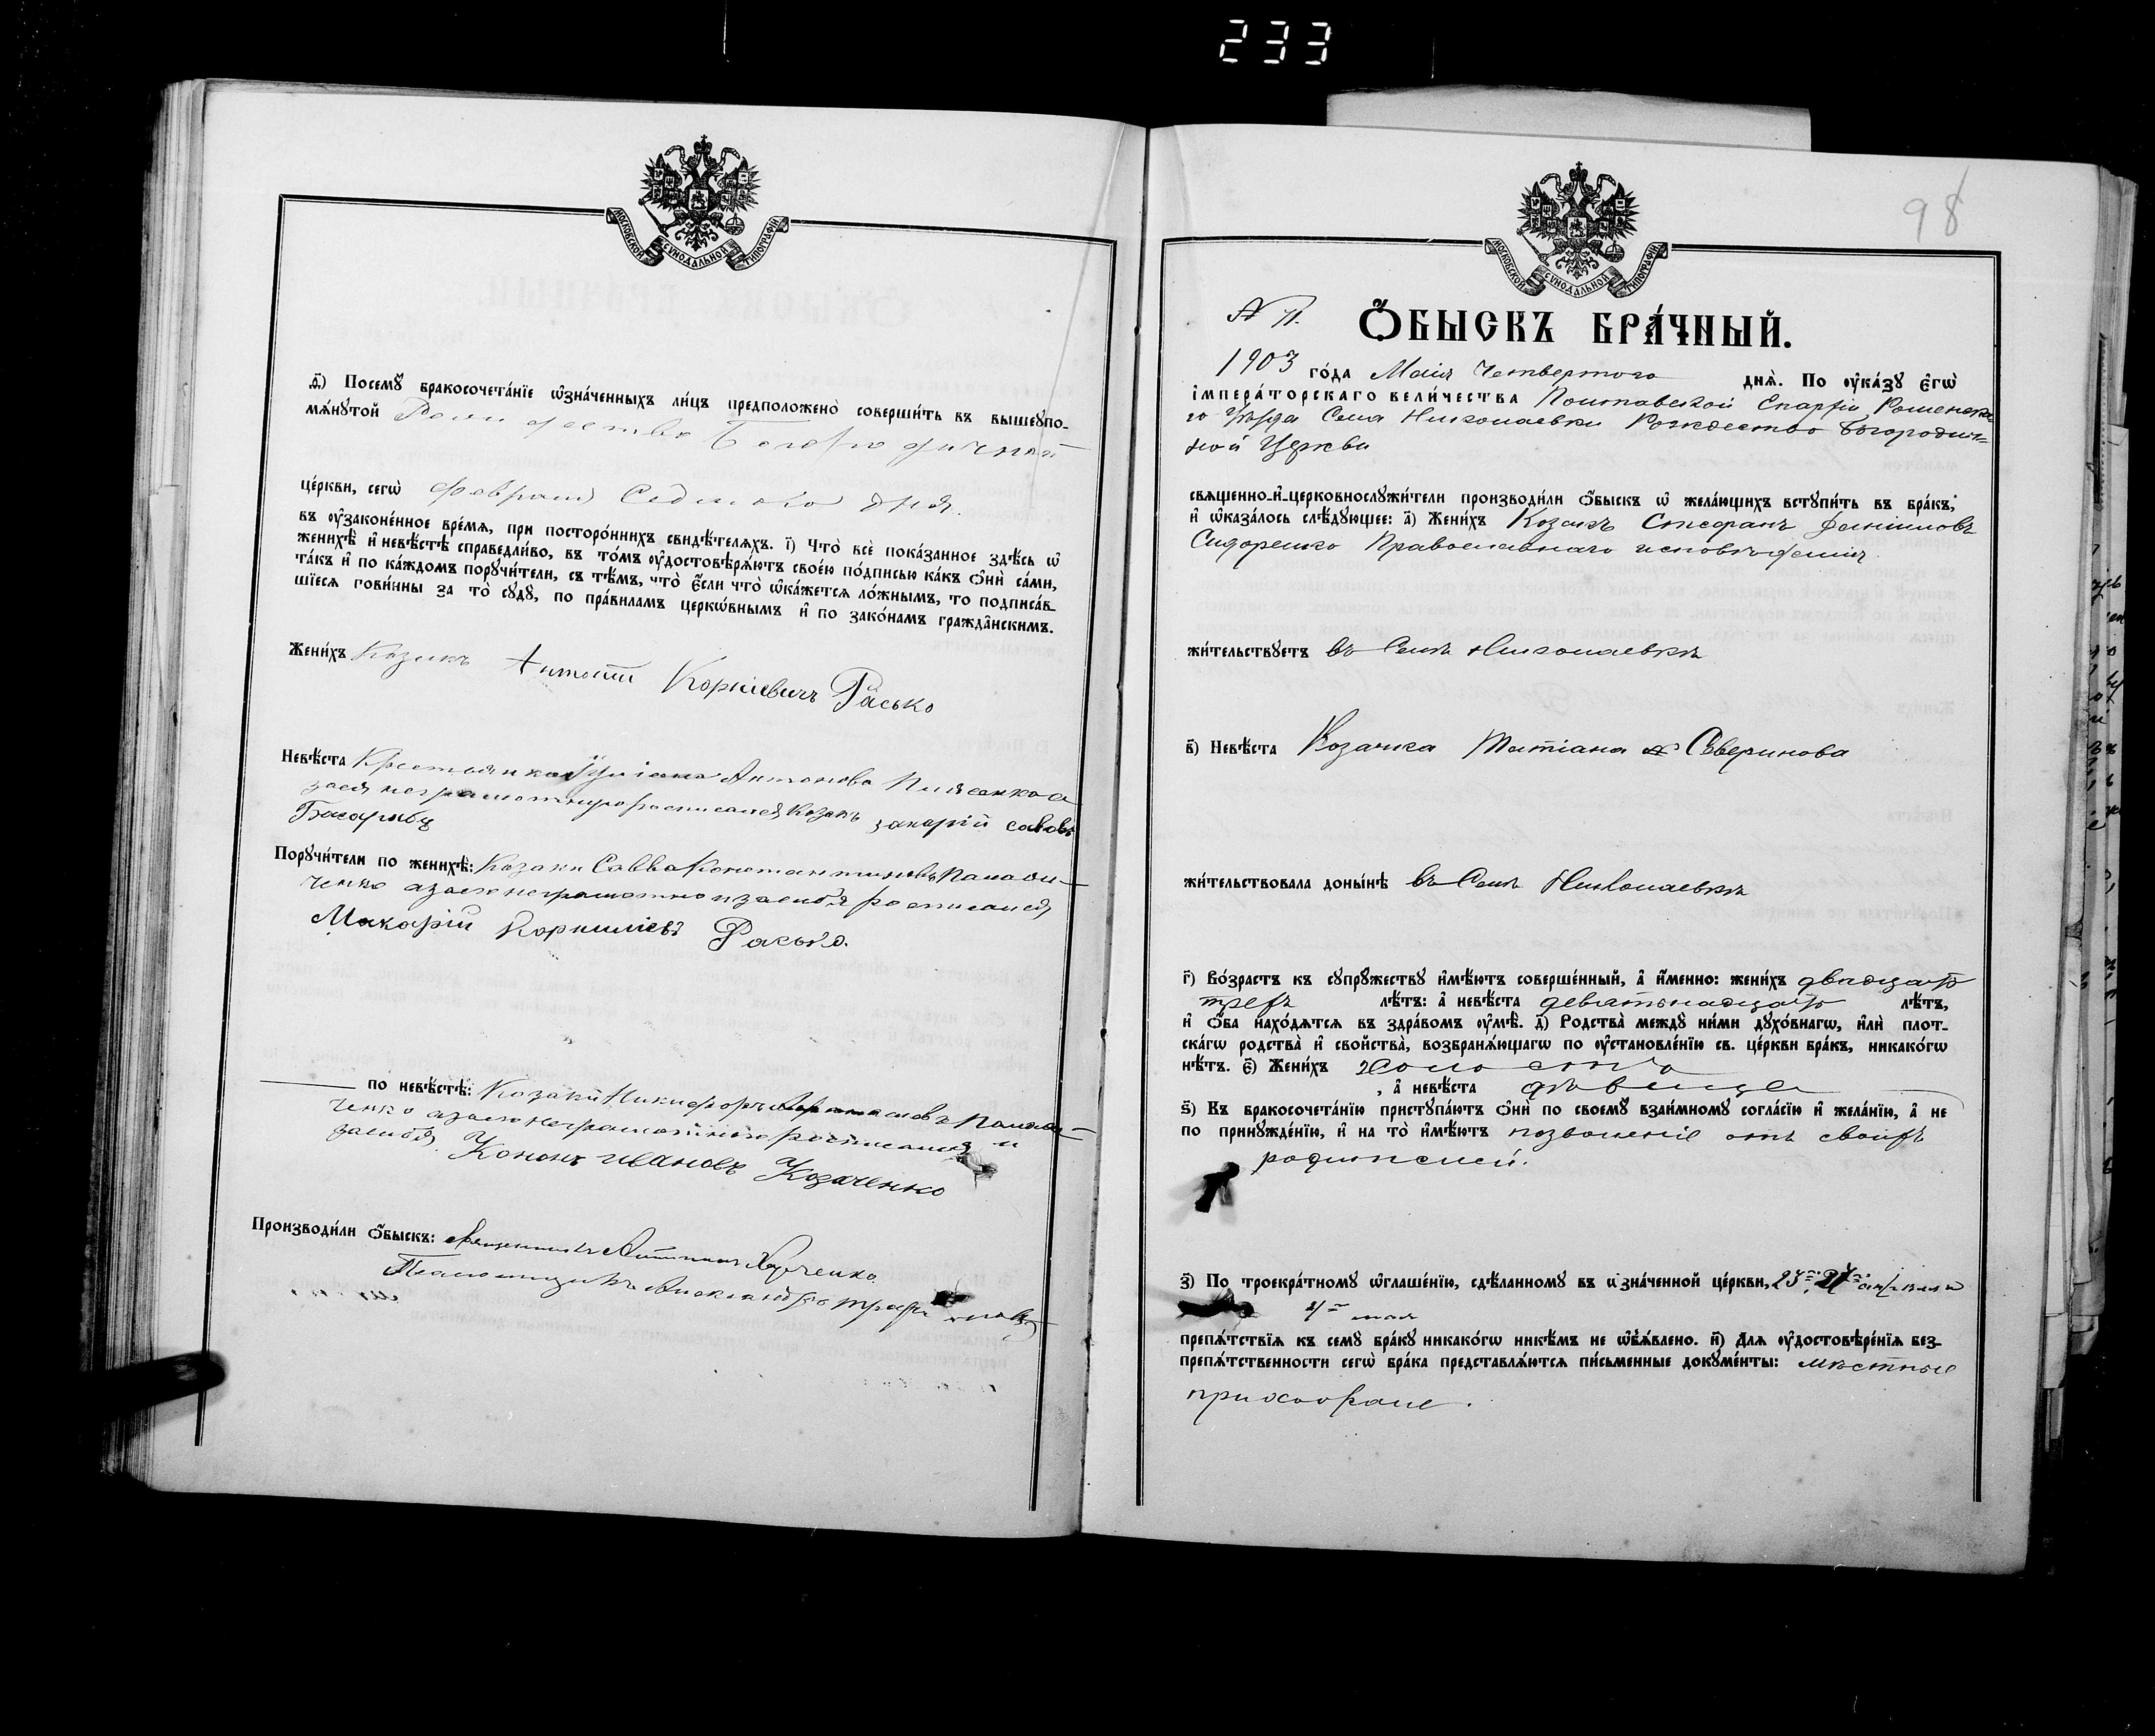 233
МОСКОВСКОЙ СѴНОДАЛЬНОЙ ТИПОГРАФІИ
ѳ҃) Посемꙋ̀ бракосочета́нїе ѡзна́ченныхъ ли́цъ предположено̀ соверши́ть въ вышеꙋпо-
мѧ́нꙋтой Рождество Богородичной
це́ркви, сегѡ̀ февраля Седьмого дня.
въ ᲂу҆зако́ненное вре́мѧ, при посторо́ннихъ свидѣ́телѧхъ. і҃) Что̀ всѐ пока́занное здѣ́сь ѡ҆
женихѣ̀ и҆ невѣ́стѣ справедли́во, въ то́мъ ᲂу҆достовѣрѧ́ютъ свое́ю по́дписью ка́къ ѻ҆нѝ са́ми,
та́къ и҆ по ка́ждомъ порꙋчи́тели, съ тѣ́мъ, что̀ є҆́сли что̀ ѡ҆ка́жетсѧ ло́жнымъ, то подписа́в-
шїесѧ пови́нны за то̀ сꙋдꙋ̀, по пра́виламъ церко́внымъ и҆ по зако́намъ гражда́нскимъ.
Жени́хъ Козакъ Антоній Корніевичъ Расько
Невѣ́ста Крестьянка Іуліана Антонова
занея неграмотную росписался Козакъ Захарій Савовъ
Порꙋчи́тели по женихѣ̀: Козаки Савва Константиновъ Палади-
ченко азаего неграмотного изасебя росписался
Макарій Корниліевъ Расько.
по невѣ́стѣ: Козаки Никифоръ
ченко азаего неграмотного росписался и
засебя Кононъ Ивановъ Козаченко
Производи́ли ѻ҆́быскъ: Священникъ Харченко
Псаломщикъ Александръ
98
МОСКОВСКОЙ СѴНОДАЛЬНОЙ ТИПОГРАФІИ
N 11.
Ѻ҆́БЫСКЪ БРА́ЧНЫЙ.
1903 го́да Маія Четвертого днѧ̀. По ᲂу҆ка́зꙋ є҆гѡ̀
і҆мпера́торскаго вели́чества Полтавской Епархіи, Роменска-
го Уѣзда Села Николаевки Рождество Богородич-
ной Церкви
свѧщенно-и҆-церковнослꙋжи́тели производи́ли ѻ҆́быскъ ѡ҆ жела́ющихъ встꙋпи́ть въ бра́къ,
и҆ ѡ҆каза́лось слѣ́дꙋющее: а҃) Жени́хъ Козакъ Стефанъ Даніиловъ
Сидоренко Православнаго исповѣданія.
жи́тельствꙋетъ въ Селѣ Николаевкѣ
в҃) Невѣ́ста Козачка Татіана Сѣверинова
жи́тельствовала доны́нѣ въ Селѣ Николаевкѣ
г҃) Во́зрастъ къ сꙋпрꙋ́жествꙋ и҆мѣ́ютъ соверше́нный, а҆ и҆́менно: жени́хъ двадцать
трехъ лѣ́тъ: а҆ невѣ́ста девятьнадцать лѣ́тъ,
и҆ ѻ҆́ба нахо́дѧтсѧ въ здра́вомъ ᲂу҆мѣ̀. д҃) Родства̀ междꙋ̀ ни́ми дꙋхо́внагѡ, и҆лѝ плот-
ска́гѡ родства̀ и҆ сво́йства̀, возбранѧ́ющагѡ по ᲂу҆становле́нїю св. це́ркви бра́къ, никако́гѡ
нѣ́тъ. є҃) Жени́хъ холостъ
, а҆ невѣ́ста дѣвица
ѕ҃) Къ бракосочета́нїю пристꙋпа́ютъ ѻ҆нѝ по своемꙋ̀ взаи́мномꙋ согла́сїю и҆ жела́нїю, а҆ не
по принꙋжде́нїю, и҆ на то̀ и҆мѣ́ютъ позволеніе отъ своихъ
родителей.
з҃) По троекра́тномꙋ ѡ҆глаше́нїю, сдѣ́ланномꙋ въ ѡзна́ченной це́ркви, 23го, 27го апрѣля и
маія
препѧ́тствїѧ къ семꙋ̀ бра́кꙋ никако́гѡ никѣ́мъ не ѡ҆б̾ѧ́влено. и҃) Длѧ ᲂу҆достовѣре́нїѧ без-
препѧ́тственности сегѡ̀ бра́ка представлѧ́ютсѧ пи́сьменные докꙋме́нты: мѣстные
прихожане.